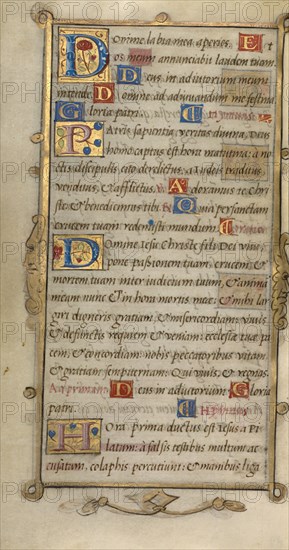 Domine labia mea aperies. Et
os meum annunciabit laudem tuam.
Deus in adiutorium meum
intende. Domine ad adiuvandum me festina
Gloria patri.
Patris sapientia veritas divina, Deus
homo captus est hora matutina: a no
tis discipulis cito derelictus, a Iudeis traditus,
venditus, & afflictus. Adoramus te Chri
ste & benedicimus tibi. Quia per sanctam
crucem tuam redemisti mundum
Domine Iesu Christe fili Dei vivi,
pone passionem tuam, crucem &
mortem tuam inter iudicium tuum, & anima
meam nunc & in hora mortis meæ: & mihi lar
giri digneris gratiam, & misericordiam: vivis
& defunctis requiem & veniam: ecclesiæ tuæ pa
cem, & concordiam: nobis peccatoribus vitam
& gloriam sempiternam: Qui vivis, & regnas.
Ad primam. Deus in adiutorium Gloria
patri.
Hora prima ductus est Iesus a Pi
latum: à falsis testibus multum ac
cusatum, colaphis percutiunt: & manibus liga